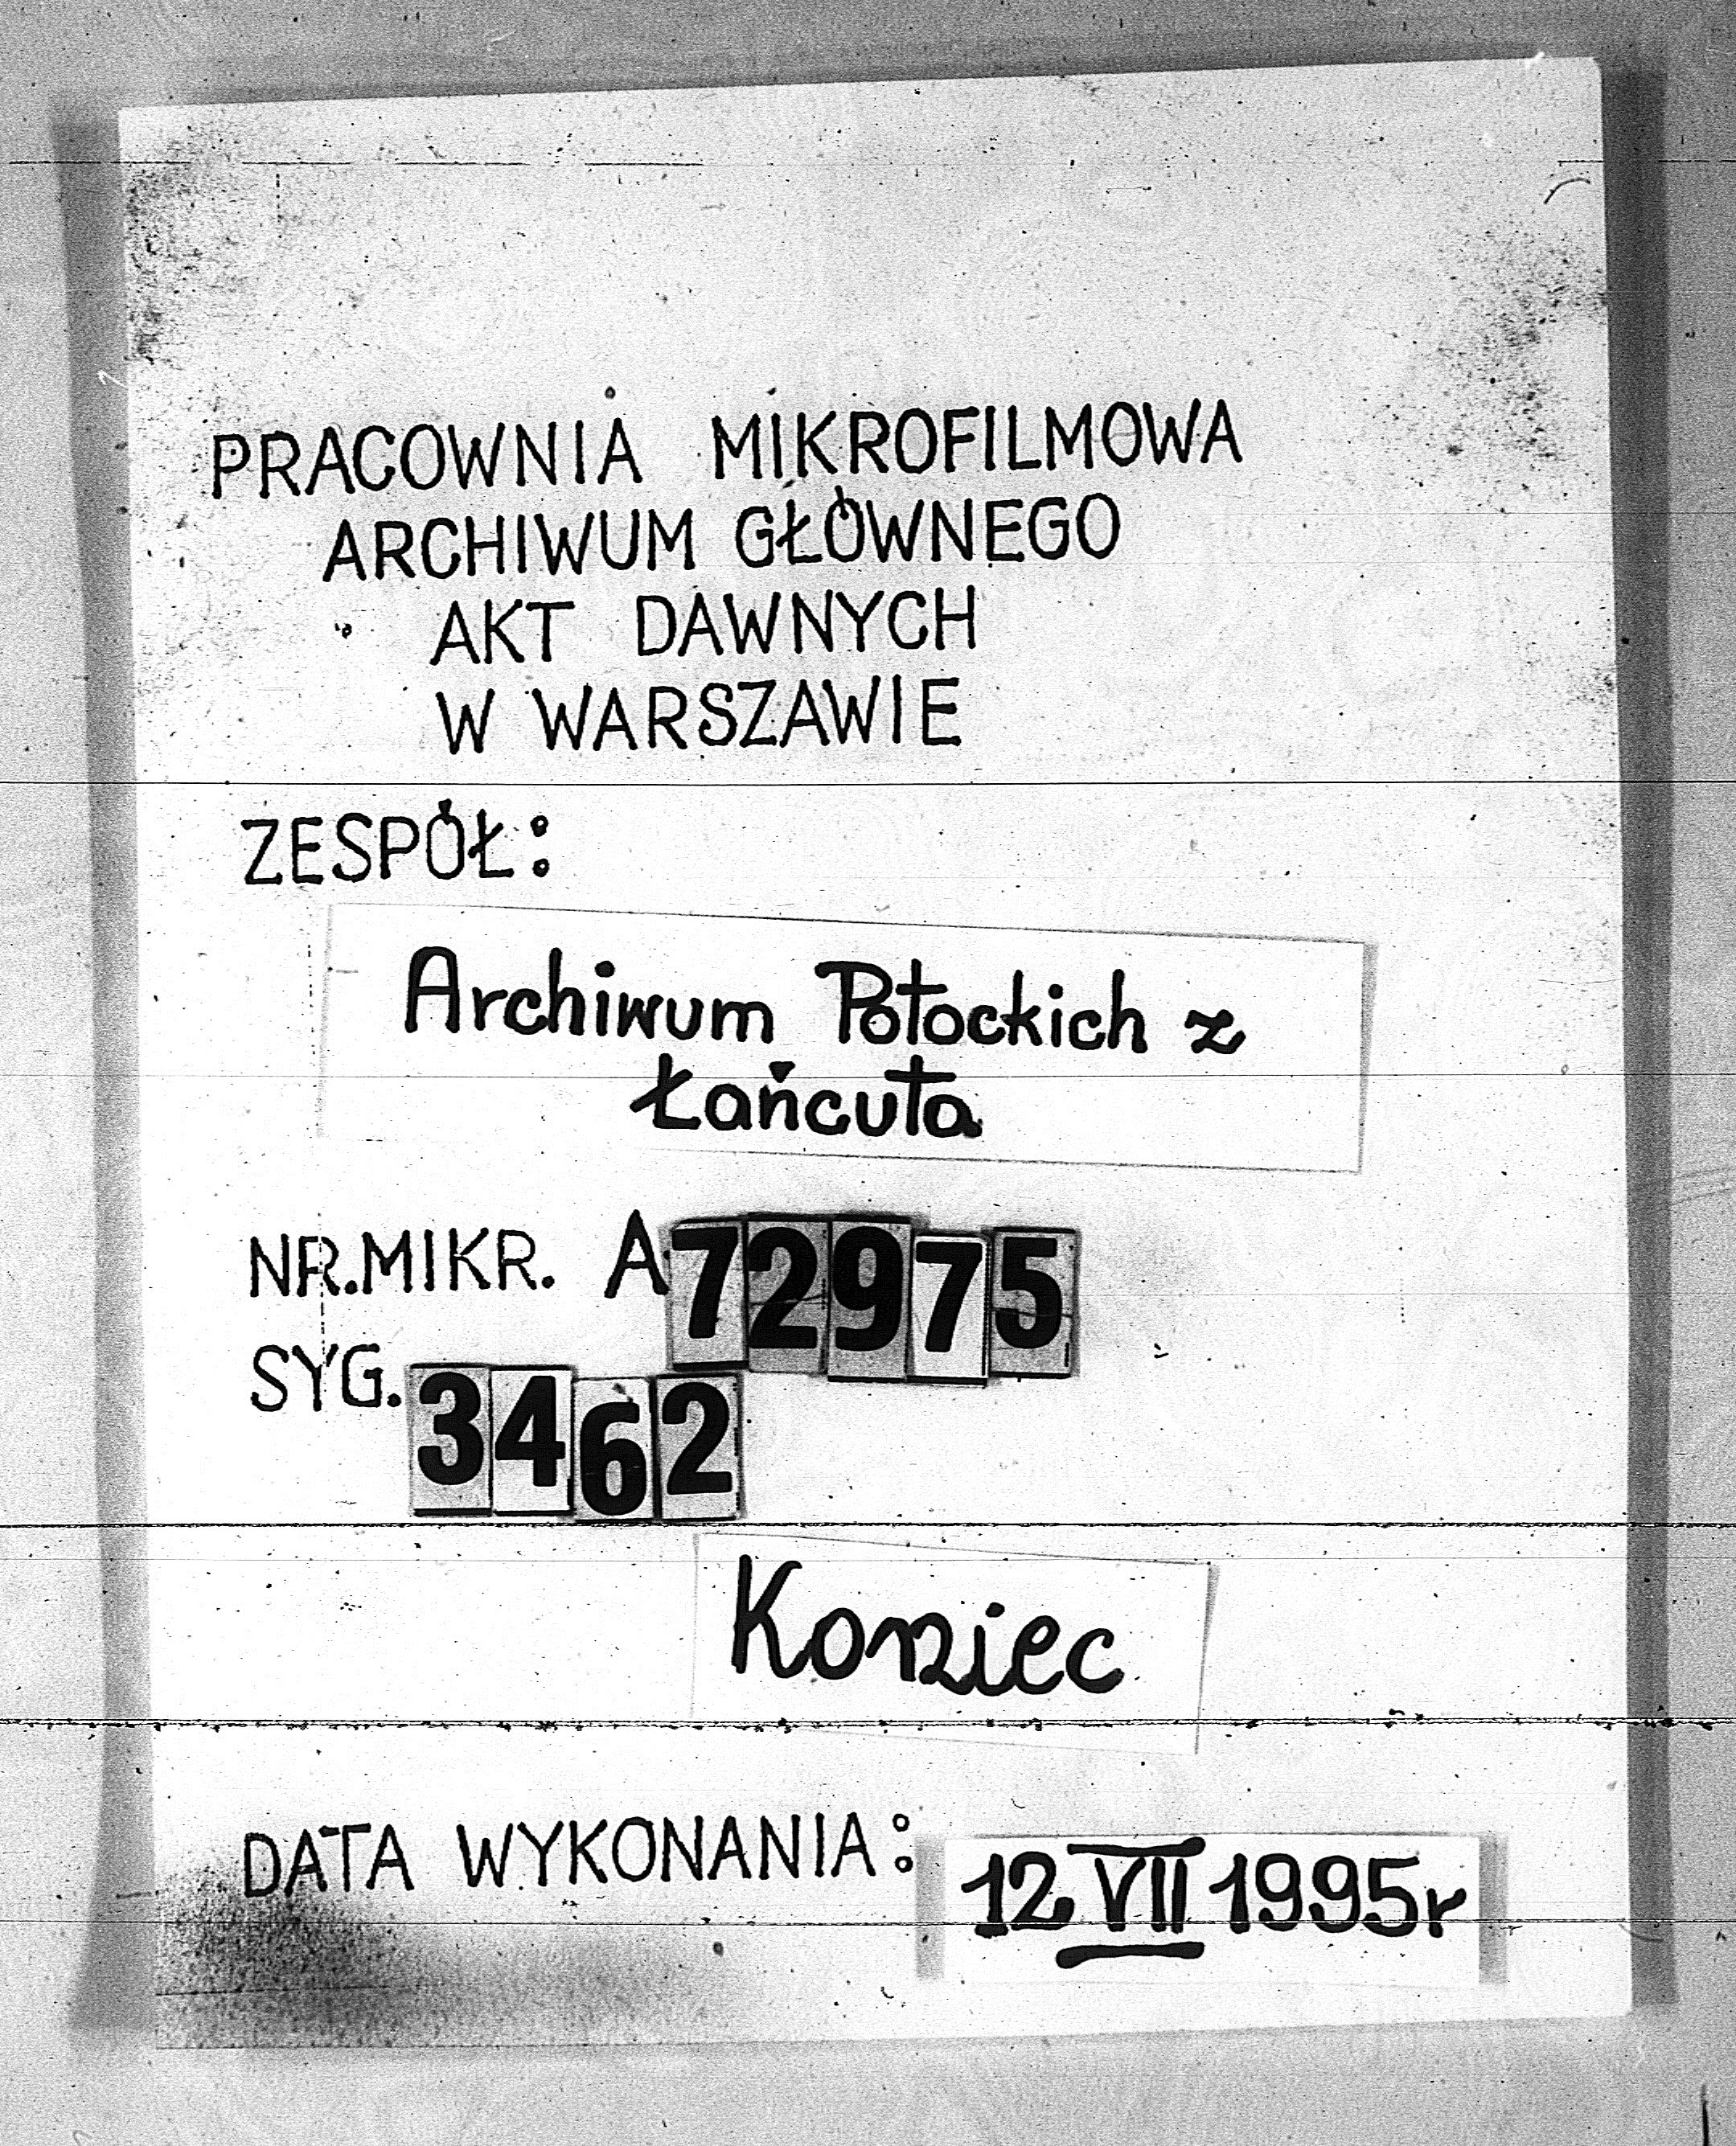 PRACOWNIA MIKROFILMOWA
ARCHIWUM GŁÓWNEGO
AKT DAWNYCH
W WARSZAWIE
ZESPÓŁ:
Archiwum Potockich z
Łańcuta
NR.MIKR. A72975
SYG. 3462
Koniec
DATA WYKONANIA: 12 VII 1995r